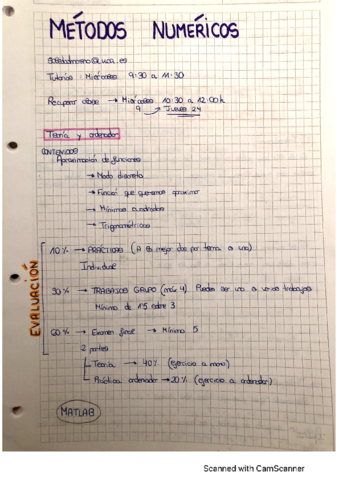 MÉTODOS NUMÉRICOS
Tutorías: Miércoles 9:30 a 11:30
Recuperar clase → Miércoles 10:30 a 12:00h
9 → Jueves 24
Teoría y ordenador
CONTENIDOS
Aproximación de funciones
→ Modo discreto
→ Función que queremos aproximar
→ Mínimos cuadrados
→ Trigonométricas
EVALUACIÓN
10% → PRÁCTICAS (A lo mejor dos por tema o uno)
Individual
30% → TRABAJOS GRUPO (máx 4). Puedes ser uno o varios trabajos
Mínimo de 1'5 sobre 3
60% → Examen final → Mínimo 5
2 partes
Teoría → 40% (ejercicio a mano)
Práctica ordenador → 20% (ejercicio a ordenador)
MATLAB
Scanned with CamScanner